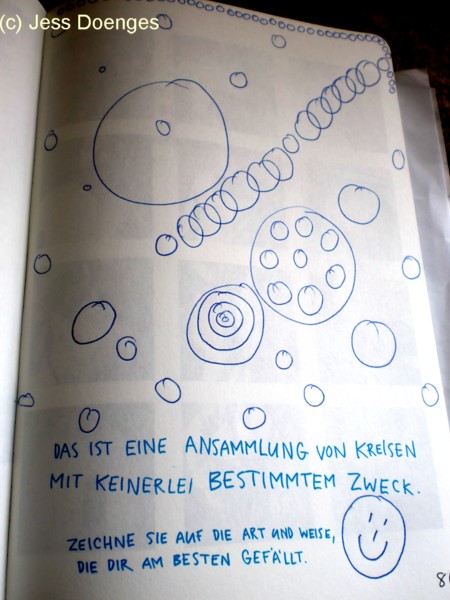 (c) Jess Doenges
DAS IST EINE ANSAMMLUNG VON KREISEN
MIT KEINERLEI BESTIMMTEM ZWECK.
ZEICHNE SIE AUF DIE ART UND WEISE,
DIE DIR AM BESTEN GEFÄLLT.